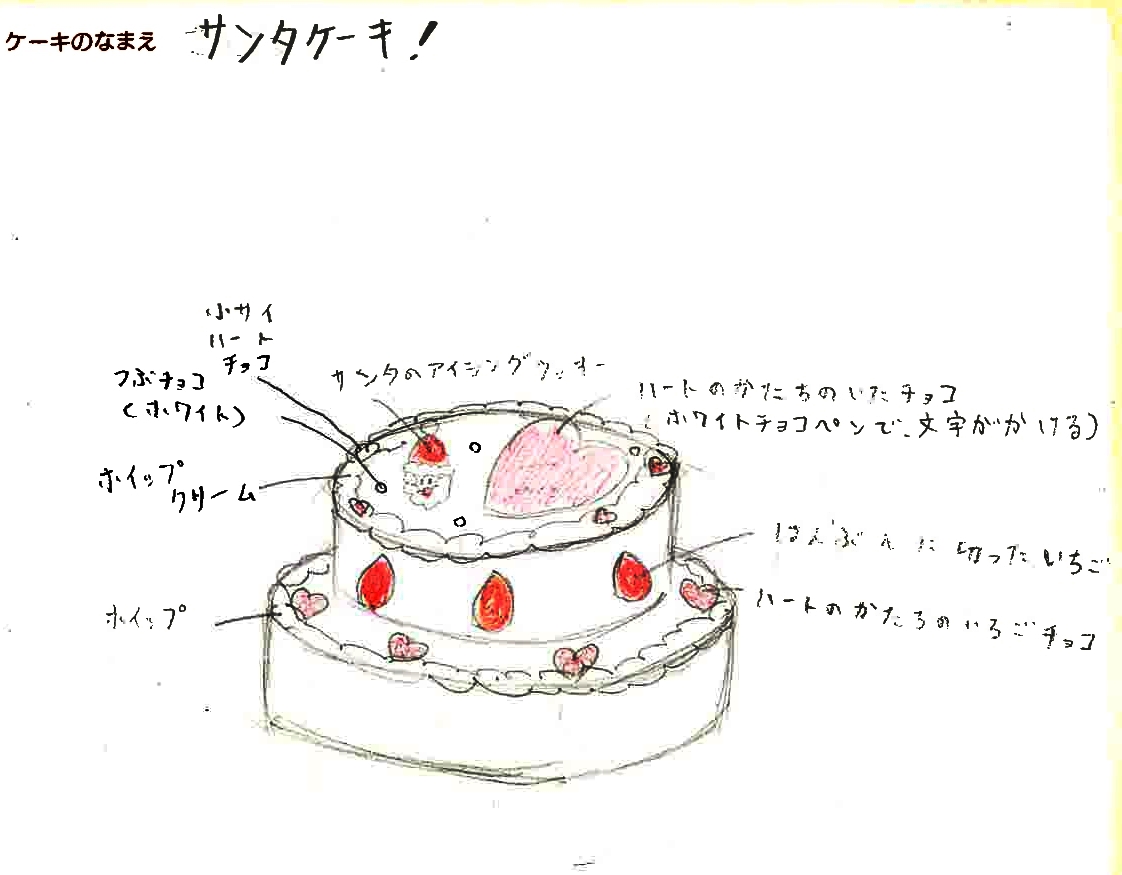 ケーキのなまえ サンタケーキ！
小サイ
ハート
チョコ
つぶチョコ
(ホワイト)
サンタのアイシングクッキー
ハートのかたちのいたチョコ
(ホワイトチョコペンで、文字がかける)
ホイップ
クリーム
はんぶんに切ったいちご
ハートのかたちのいちごチョコ
ホイップ